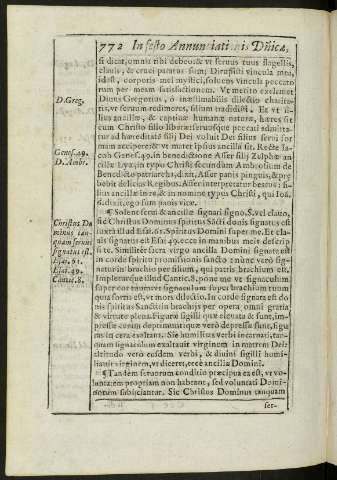 772 In festo Annunciationis Dñicæ,
si dicat, omnia tibi debeo: & vt seruus tuus flagellis,
clauis, & cruci paratus sum; Dirupisti vincula mea,
idest, corporis mei mystici, soluens vincula peccato
rum per meam satisfactionem. Vt merito exclamet
D.Greg.
Diuus Gregorius, ô inæstimabilis dilectio charita-
tis, vt seruum redimeres, filium tradidisti. Et vt fi-
lius ancillæ, & captiuæ humanæ naturæ, hæres sit
cum Christo filio liberæ: seruusque peccati admitta-
tur ad hæreditatē filij Dei voluit Dei filius serui for
mam accipere: & vt mater ipsius ancilla sit. Recte Ia-
Genes.49.
cob Genes.49. in benedictione Asser filij Zelphæ an-
D.Ambr.
cillæ Lyæ, in typo Christi secundum Ambrosium de
Benedictio patriarcha, dixit, Asser panis pinguis, & præ
bebit delicias Regibus. Asser interpretatur beatus: fi-
lius ancillæ in re, & in nomine typus Christi, qui Ioã.
6. dixit, ego sum panis viuus.
¶ Solent serui & ancillæ signari signo S. vel clauo,
Christus Do
minus tan-
quam seruus
signatus est.
Esai.61.
Esai.49.
Cantic.8.
sic Christus Dominus spiritus Sācti donis signatus est
iuxta illud Esai.61. Spiritus Domini super me. Et cla-
uis signatus est Esai.49. ecce in manibus meis descrip
si te. Similiter sacra virgo ancilla Domini signata est
in corde spiritu promissionis sancto: & nunc verò sig-
naturin brachio per filium, qui patris brachium est.
Impleturque illud Cantic.8. pone me vt signaculum
super cor tuum: vt signaculum super brachium tuum
quia fortis est, vt mors dilectio. In corde signata est do
nis spiritus Sancti: in brachijs per opera omni gratia,
& virtute plena. Figuræ sigilli quæ eleuata & sunt, im-
pressæ ceræ deprimuntur: quæ verò depressæ sunt, figu
ra in cera surgunt. Sic humilitas verbi incarnati, tan-
quam signaculum exaltauit virginem in matrem Dei:
altitudo verò eiusdem verbi, & diuini sigilli humi-
liauit virginem, vt diceret, ecce ancilla Domini.
¶ Tandem seruorum conditio præcipua ea est, vt vo-
luntatem propriam non habeant, sed voluntati Domi-
norum subijciantur. Sic Christus Dominus tanquam
ser-